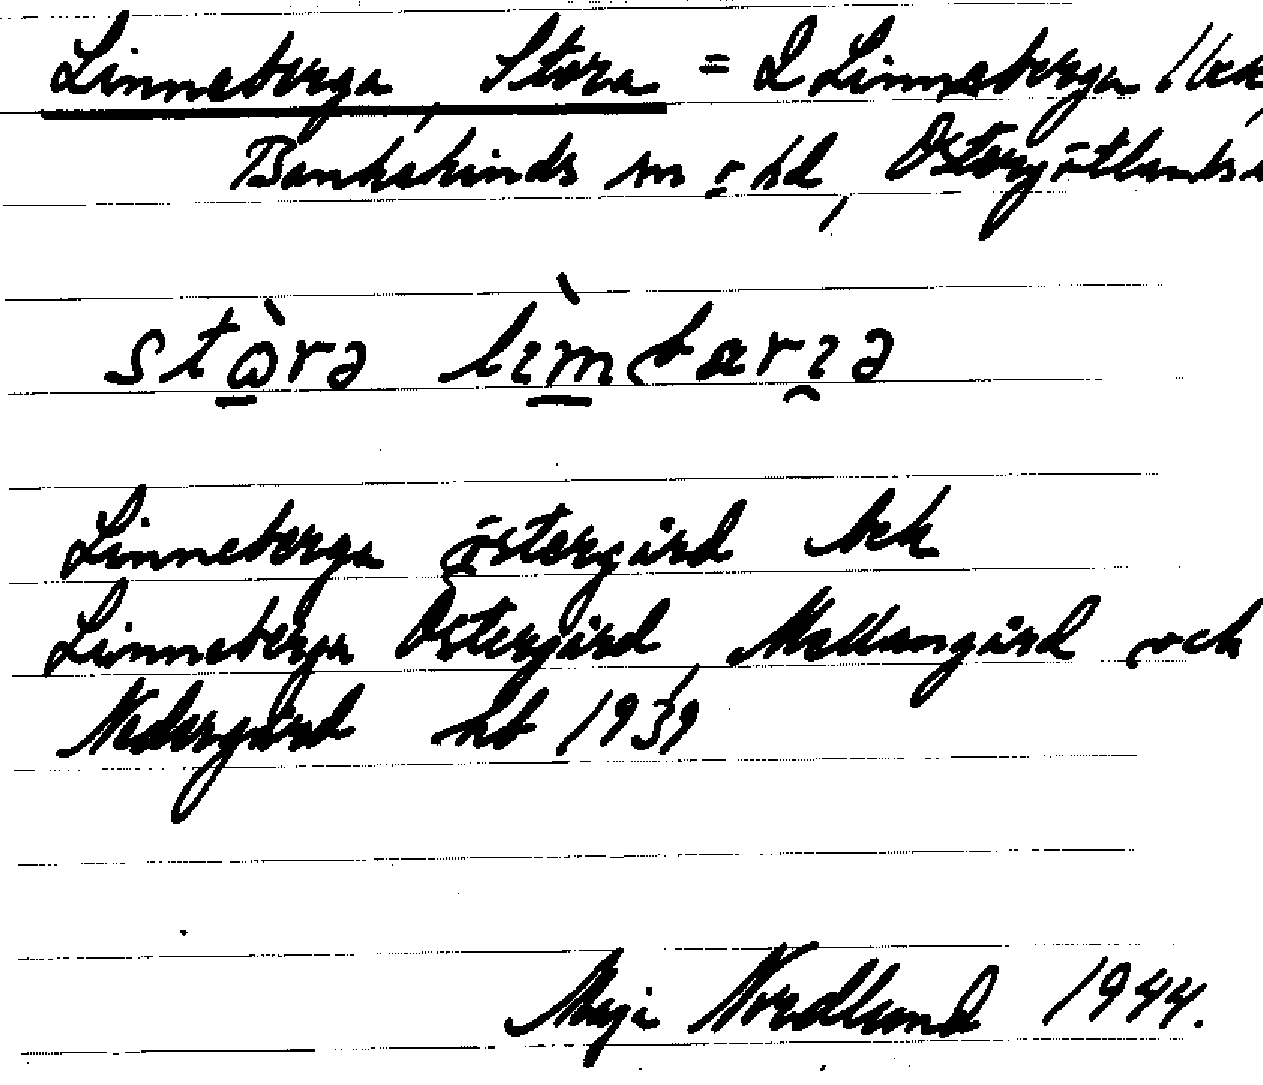 Linneberga, Stora = L Linneberga
Bankekinds sn o hd, Östergötlands
Linneberga östergård
Linneberga Östergård, Mellangård och
Nedergård 1939
Maja Nordlund 1944.